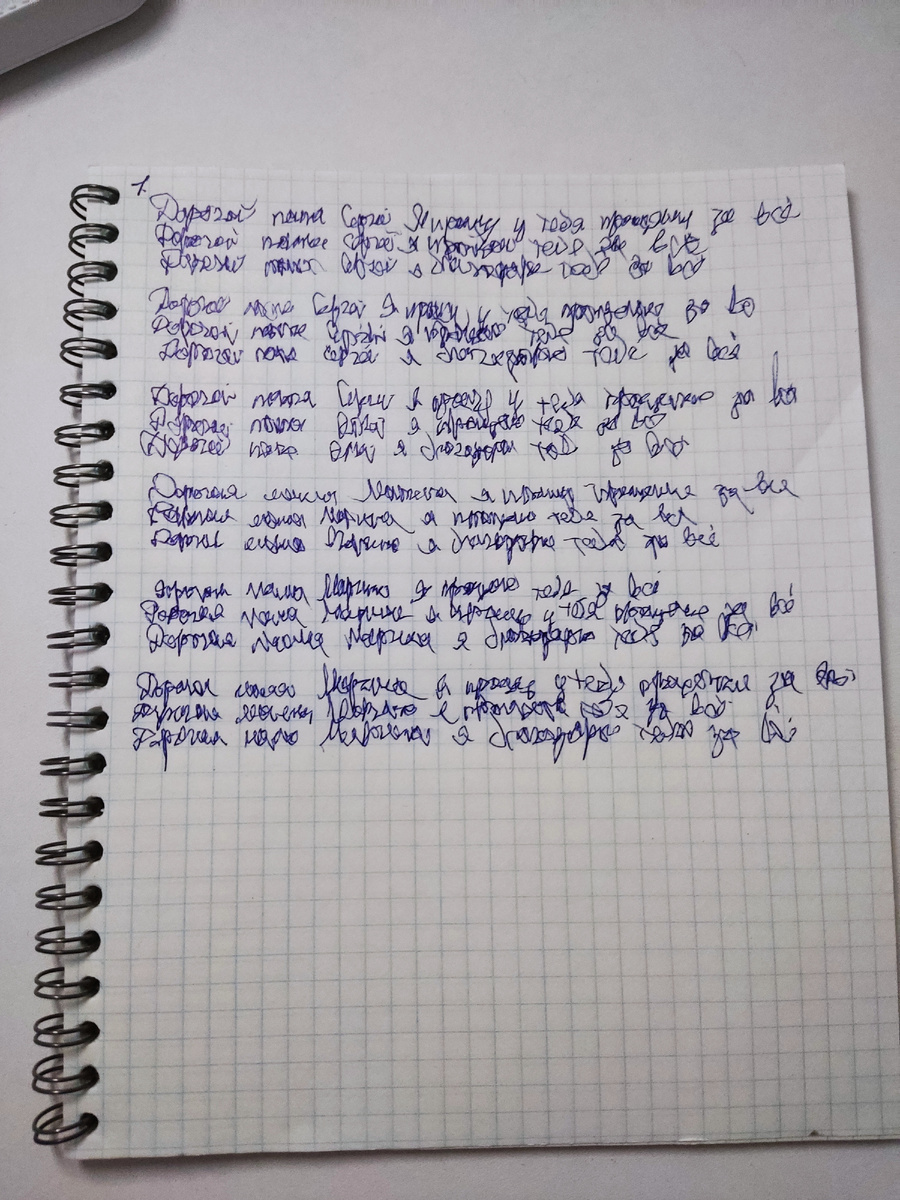 1.
Дорогой папа Сергей Я прошу у тебя прощения за всё
Дорогой папа Сергей я прощаю тебя за всё
Дорогой папа Сергей я благодарю тебя за всё
Дорогой папа Сергей Я прошу у тебя прощения за всё
Дорогой папа Сергей я прощаю тебя за все
Дорогой папа Сергей я благодарю тебя за всё
Дорогой папа Сергей я прошу у тебя прощения за всё
Дорогой папа я прощаю тебя за всё
Дорогой папа я благодарю тебя за всё
Дорогая мама Марина я прошу прощения за все
Дорогая мама Марина я прощаю тебя за всё
Дорогая мама Марина я благодарю тебя за всё
Дорогая мама Марина я прощаю тебя за всё
Дорогая мама Марина я прошу у тебя прощения за всё
Дорогая мама Марина я благодарю тебя за всё
Дорогая мама Марина я прошу у тебя прощения за всё
Дорогая мама Марина я прощаю тебя за всё
Дорогая мама Марина я благодарю тебя за всё